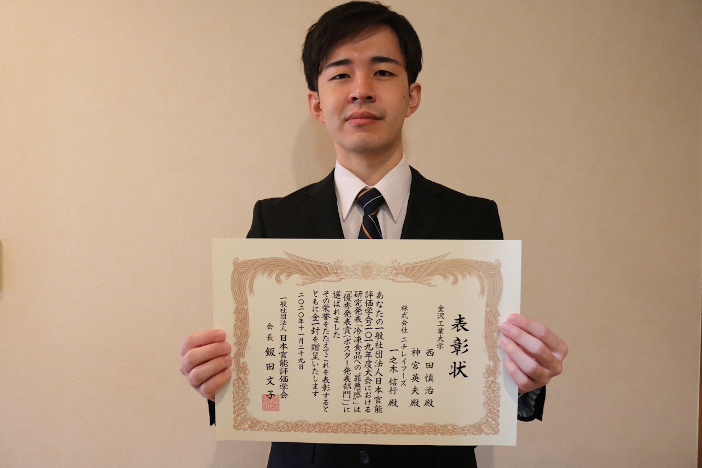 表彰状
金沢工業大学
西田慎治殿
神宮英夫殿
株式会社 ニチレイフーズ
一之木信行殿
あなたの一般社団法人日本官能
評価学会二〇一九年度大会における
研究発表「冷凍食品への「罪悪感」」は
「優秀発表賞(ポスター発表部門)」に
選ばれました
その栄誉をたたえてこれを表彰すると
ともに金一封を贈呈いたします
二〇二〇年十一月二十九日
一般社団法人 日本官能評価学会
会長 飯田文子